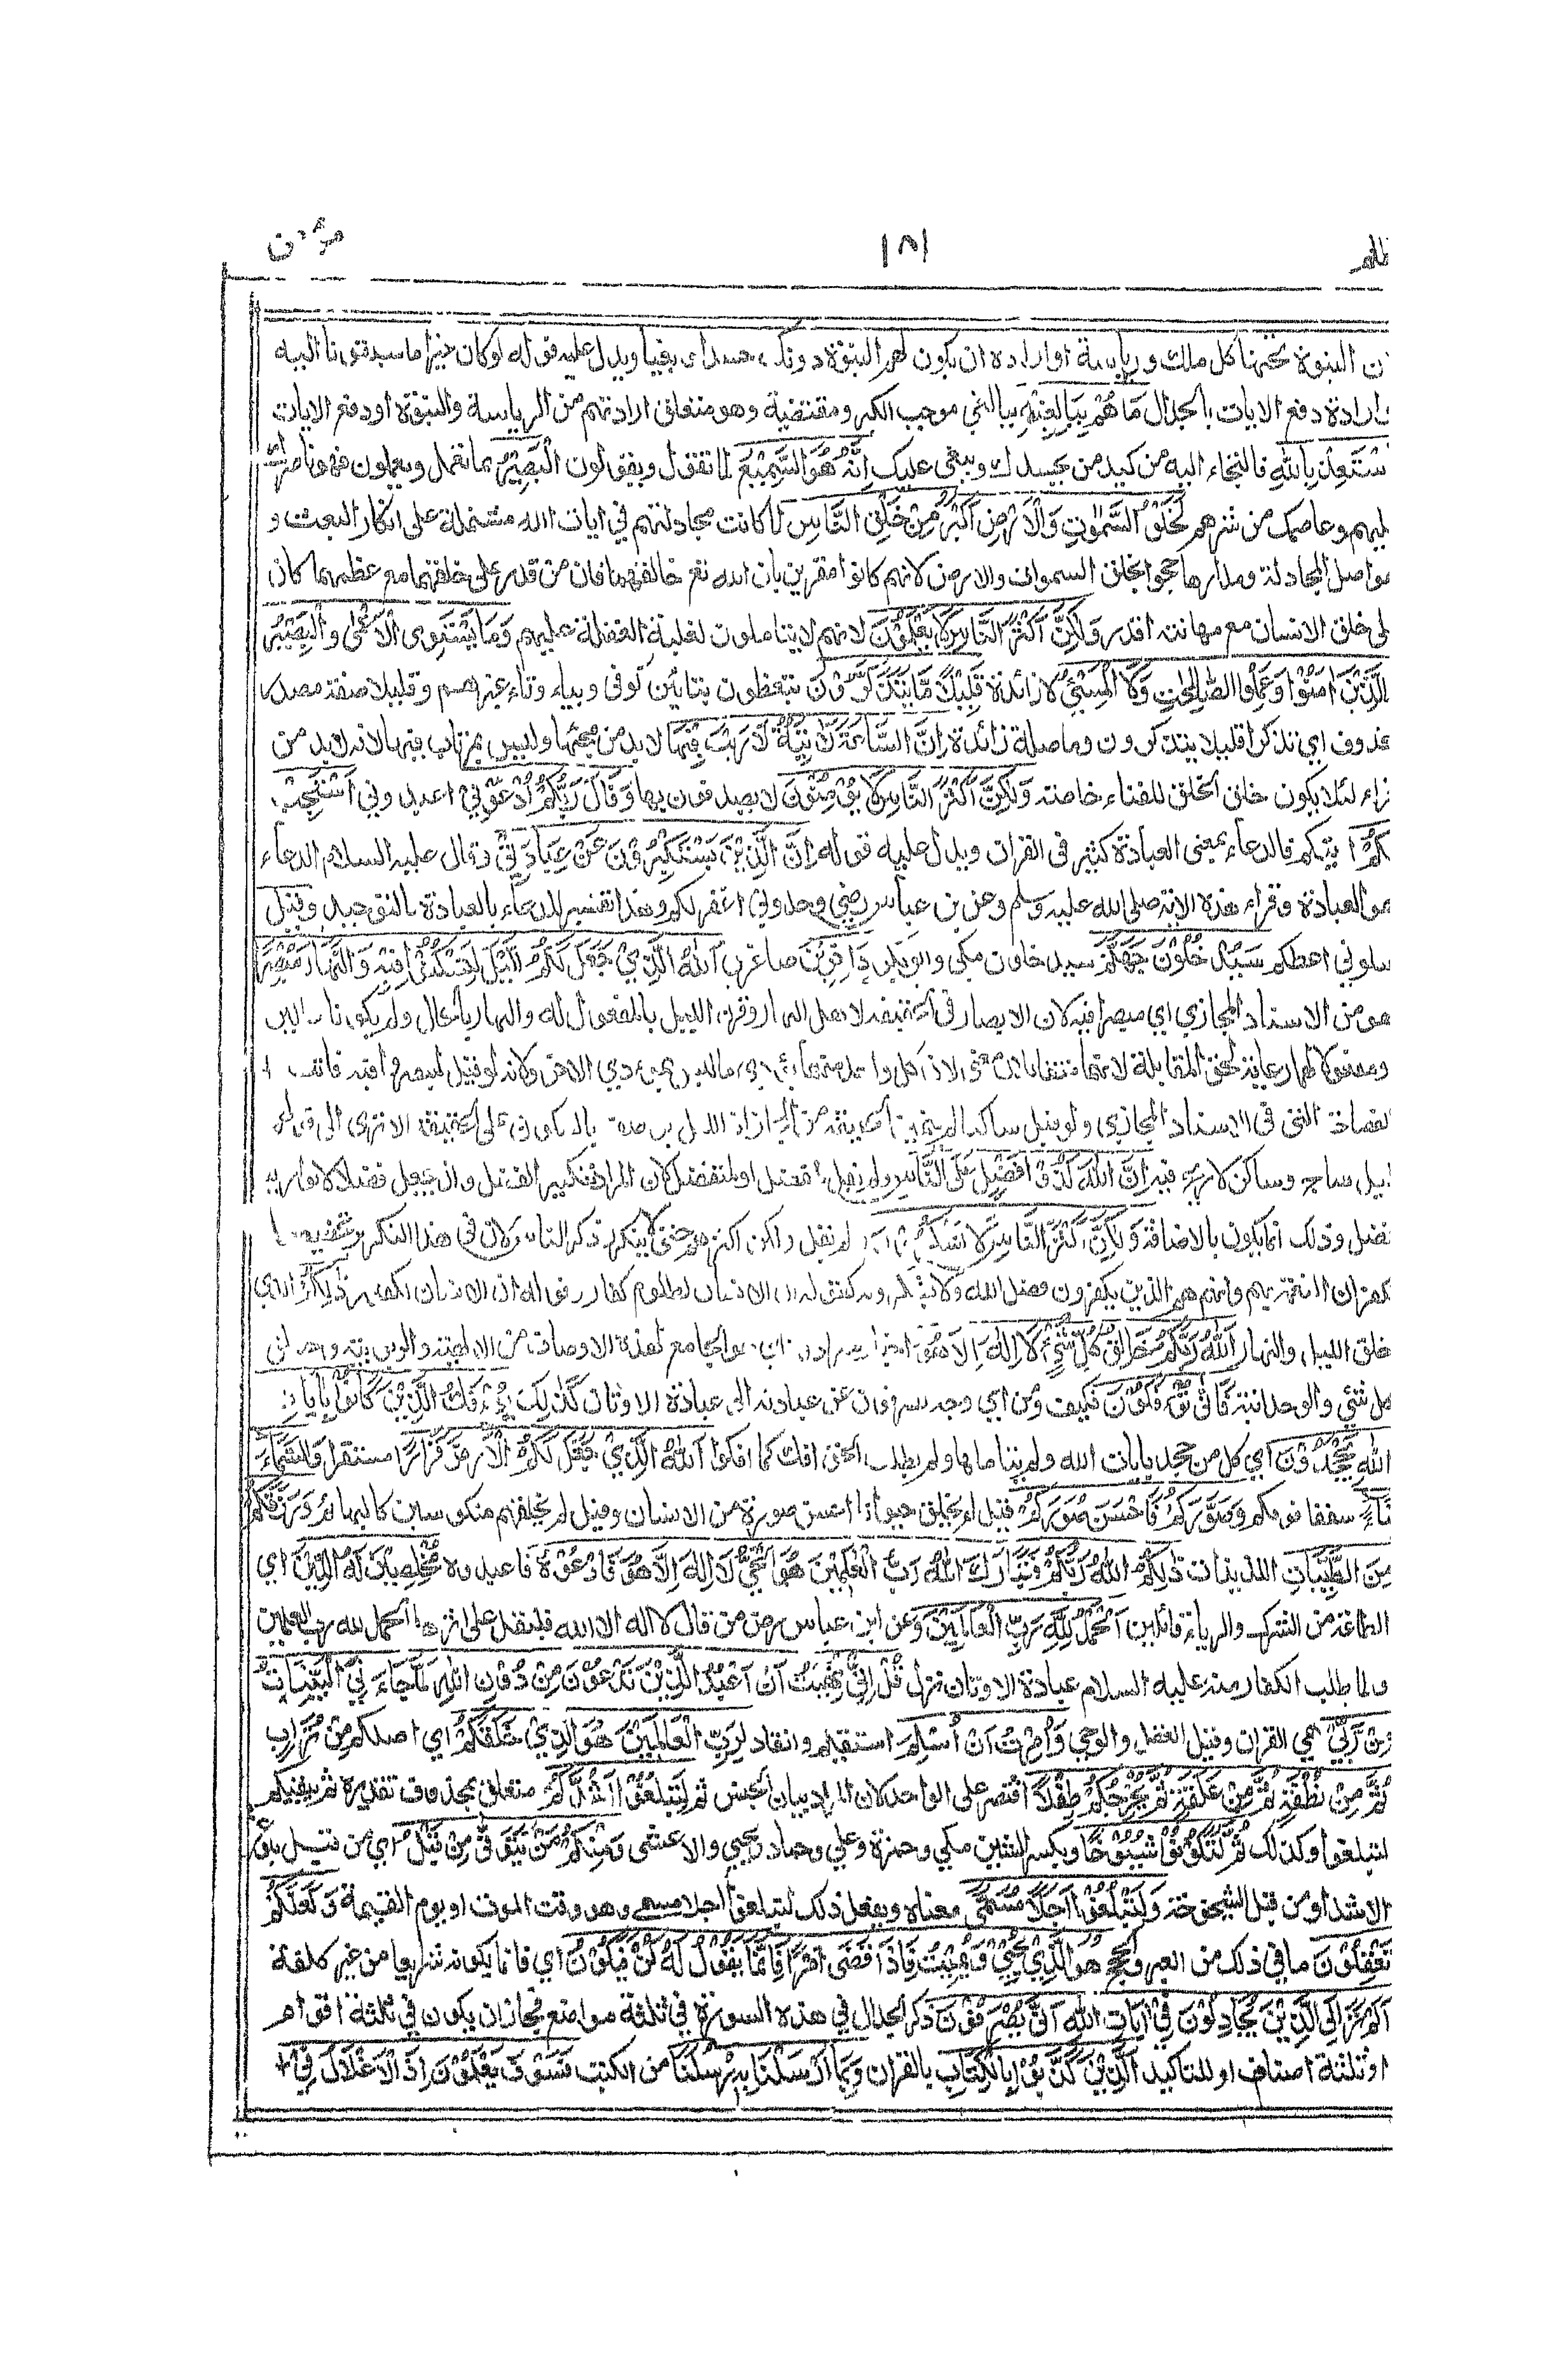 مؤمن ١٨١
ن النبوة تحتها كل ملك ورياسة او ارادة ان يكون لهم النبوة دونك حسدا وبغيا ويدل عليه قوله لو كان خيرا ما سبقونا اليه
ارادة دفع الايات بالجدال مَا هُمْ بِبَالِغِيْهِ ببالغي موجب الكبر ومقتضيه وهو متعلق ارادتهم من الرياسة والنبوة او دفع الايات
سْتَعِذْ بِاللّٰهِ فالتجاء اليه من كيد من يحسدك ويبغي عليك اِنَّهُ هُوَ السَّمِيْعُ لما تقول ويقولون الْبَصِيْرُ بما تعمل ويعملون فهو ناصرك
ليهم وعاصمك من شرهم لَخَلْقُ السَّمٰوٰتِ وَالْاَرْضِ اَكْبَرُ مِنْ خَلْقِ النَّاسِ لما كانت مجادلتهم في ايات الله مشتملة على انكار البعث و
هو اصل المجادلة ومدارها حجوا بخلق السموات والارض لانهم كانوا مقرين بان الله تع خالقهما فان من قدر على خلقهما مع عظمهما كان
لى خلق الانسان مع مهانته اقدر وَلٰكِنَّ اَكْثَرَ النَّاسِ لَا يَعْلَمُوْنَ لانهم لا يتاملون لغلبة الغفلة عليهم وَمَا يَسْتَوِى الْاَعْمٰى وَالْبَصِيْرُ
الَّذِيْنَ اٰمَنُوْا وَعَمِلُوا الصّٰلِحٰتِ وَلَا الْمُسِيْٓءُ لا زائدة قَلِيْلًا مَّا يَتَذَكَّرُوْنَ يتعظون بتائين كوفي وبياء وتاء غيرهم وقليلا صفة مصدر
محذوف اي تذكرا قليلا يتذكرون وما صلة زائدة اِنَّ السَّاعَةَ لَاٰتِيَةٌ لَّا رَيْبَ فِيْهَا لا بد من مجيئها وليس بمرتاب فيها لانه لا بد من
جزاء لئلا يكون خلق الخلق للفناء خاصة وَلٰكِنَّ اَكْثَرَ النَّاسِ لَا يُؤْمِنُوْنَ لا يصدقون بها وَقَالَ رَبُّكُمُ ادْعُوْنِيْ اعبدوني اَسْتَجِبْ
لَكُمْ اثبكم فالدعاء بمعنى العبادة كثير في القران ويدل عليه قوله اِنَّ الَّذِيْنَ يَسْتَكْبِرُوْنَ عَنْ عِبَادَتِيْ وقال عليه السلام الدعاء
هو العبادة وقراء هذه الاية صلى الله عليه وسلم وعن بن عباس رضي وحدوني اغفر لكم وهذا تفسير للدعاء بالعبادة بالتوحيد وقيل
سلوني اعطكم سَيَدْخُلُوْنَ جَهَنَّمَ سيدخلون مكي وابوبكر دَاخِرِيْنَ صاغرين اَللّٰهُ الَّذِيْ جَعَلَ لَكُمُ الَّيْلَ لِتَسْكُنُوْا فِيْهِ وَالنَّهَارَ مُبْصِرًا
هو من الاسناد المجازي اي مبصرا فيه لان الابصار في الحقيقة لاهل النهار وقرن الليل بالمفعول له والنهار بالحال ولم يكونا حالين
ومفعولا لهما رعاية لحق المقابلة لانهما متقابلان معنى
لفصاحة التي في الاسناد المجازي ولو قيل ساكنا لم يتميز الحقيقة من المجاز
ليل ساج وساكن لا ريح فيه اِنَّ اللّٰهَ لَذُوْ فَضْلٍ عَلَى النَّاسِ ولم يقل لمفضل او لمتفضل لان المراد تنكير الفضل وان يجعل فضلا لا يوازيه
فضل وذلك انما يكون بالاضافة وَلٰكِنَّ اَكْثَرَ النَّاسِ لَا يَشْكُرُوْنَ لم يقل ولكن اكثرهم حتى لا يتكرر ذكر الناس لان في هذا التكرير تخصيصا
لكفران النعمة بهم وانهم هم الذين يكفرون فضل الله ولا يشكرونه كقوله ان الانسان لظلوم كفار وقوله ان الانسان لكفور ذٰلِكُمُ الذي
خلق الليل والنهار اللّٰهُ رَبُّكُمْ خَالِقُ كُلِّ شَيْءٍ لَا اِلٰهَ اِلَّا هُوَ اخبار مترادفة اي هو الجامع لهذه الاوصاف من الالهية والربوبية وخلق
كل شئ والوحدانية فَاَنّٰى تُؤْفَكُوْنَ فكيف ومن اي وجه تصرفون عن عبادته الى عبادة الاوثان كَذٰلِكَ يُؤْفَكُ الَّذِيْنَ كَانُوْا بِاٰيَاتِ
اللّٰهِ يَجْحَدُوْنَ اي كل من جحد بايات الله ولم يتاملها ولم يطلب الحق افك كما افكوا اَللّٰهُ الَّذِيْ جَعَلَ لَكُمُ الْاَرْضَ قَرَارًا مستقرا وَالسَّمَاءَ
بِنَاءً سقفا فوقكم وَصَوَّرَكُمْ فَاَحْسَنَ صُوَرَكُمْ قيل لم يخلق حيوانا احسن صورة من الانسان وقيل لم يخلقهم منكوسين كالبهائم وَرَزَقَكُمْ
مِنَ الطَّيِّبَاتِ اللذيذات ذٰلِكُمُ اللّٰهُ رَبُّكُمْ فَتَبَارَكَ اللّٰهُ رَبُّ الْعٰلَمِيْنَ هُوَ الْحَيُّ لَا اِلٰهَ اِلَّا هُوَ فَادْعُوْهُ فاعبدوه مُخْلِصِيْنَ لَهُ الدِّيْنَ اي
الطاعة من الشرك والرياء قائلين اَلْحَمْدُ لِلّٰهِ رَبِّ الْعَالَمِيْنَ وعن ابن عباس رض من قال لا اله الا الله فليقل على اثرها الحمد لله رب العلمين
ولما طلب الكفار منه عليه السلام عبادة الاوثان نزل قُلْ اِنِّيْ نُهِيْتُ اَنْ اَعْبُدَ الَّذِيْنَ تَدْعُوْنَ مِنْ دُوْنِ اللّٰهِ لَمَّا جَاءَنِيَ الْبَيِّنَاتُ
مِنْ رَّبِّيْ هي القران وقيل العقل والوحي وَاُمِرْتُ اَنْ اُسْلِمَ استقيم وانقاد لِرَبِّ الْعَالَمِيْنَ هُوَ الَّذِيْ خَلَقَكُمْ اي اصلكم مِنْ تُرَابٍ
ثُمَّ مِنْ نُطْفَةٍ ثُمَّ مِنْ عَلَقَةٍ ثُمَّ يُخْرِجُكُمْ طِفْلًا اقتصر على الواحد لان المراد بيان الجنس ثم لِتَبْلُغُوْا اَشُدَّكُمْ متعلق بمحذوف تقديره ثم يبقيكم
لتبلغوا وكذلك ثُمَّ لِتَكُوْنُوْا شُيُوْخًا وبكسر الشين مكي وحمزة وعلي وحماد ويحيى والاعشى وَمِنْكُمْ مَنْ يُتَوَفّٰى مِنْ قَبْلُ اي من قبل بلوغ
الاشد او من قبل الشيخوخة وَلِتَبْلُغُوْا اَجَلًا مُسَمًّى معناه ويفعل ذلك لتبلغوا اجلا مسمى وهو وقت الموت او يوم القيمة وَلَعَلَّكُمْ
تَعْقِلُوْنَ ما في ذلك من العبر والحجج هُوَ الَّذِيْ يُحْيِيْ وَيُمِيْتُ فَاِذَا قَضٰى اَمْرًا فَاِنَّمَا يَقُوْلُ لَهُ كُنْ فَيَكُوْنُ اي فانما يكونه سريعا من غير كلفة
اَلَمْ تَرَ اِلَى الَّذِيْنَ يُجَادِلُوْنَ فِيْ اٰيَاتِ اللّٰهِ اَنّٰى يُصْرَفُوْنَ ذكر الجدال في هذه السورة في ثلثة مواضع فجاز ان يكون في ثلثة اقوام
او ثلثة اصناف او للتاكيد الَّذِيْنَ كَذَّبُوْا بِالْكِتَابِ بالقران وَبِمَا اَرْسَلْنَا بِهِ رُسُلَنَا من الكتب فَسَوْفَ يَعْلَمُوْنَ اِذِ الْاَغْلَالُ فِيْ